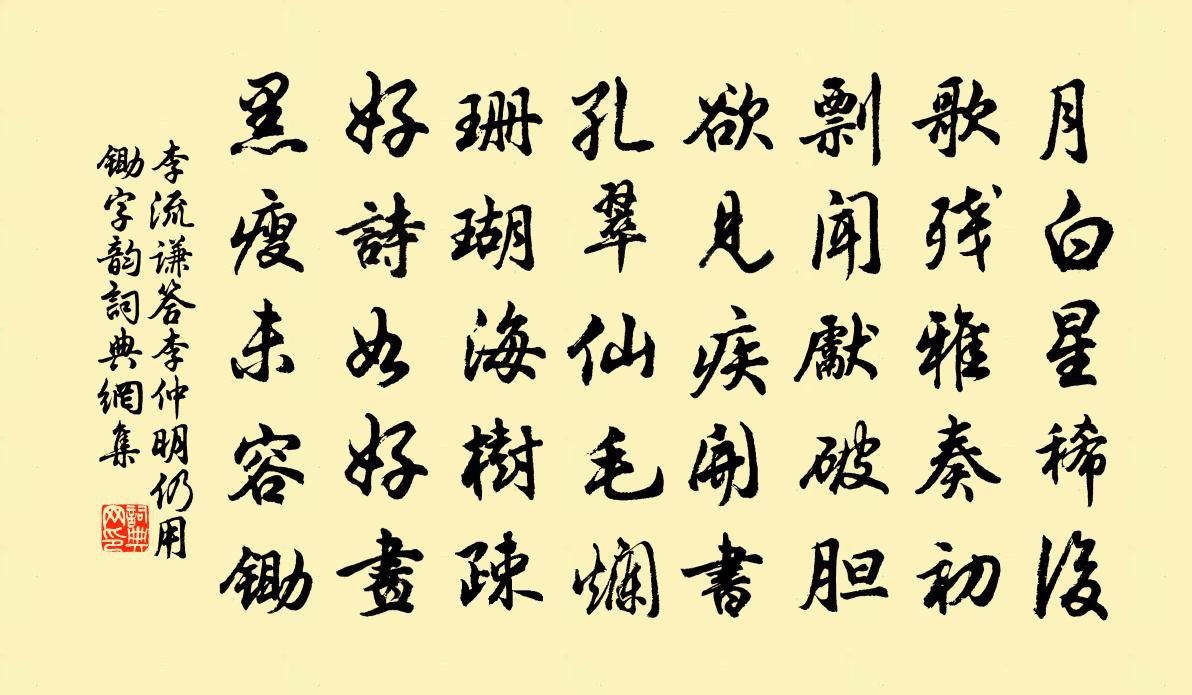 月白星稀後
歌残雅奏初
剽聞獻破胆
欲見疾開書
孔翠仙毛爛
珊瑚海樹疎
好詩如好畫
黑瘦未容鋤
李流谦答李仲明仍用
鋤字韵詞典網集
詞典
网印